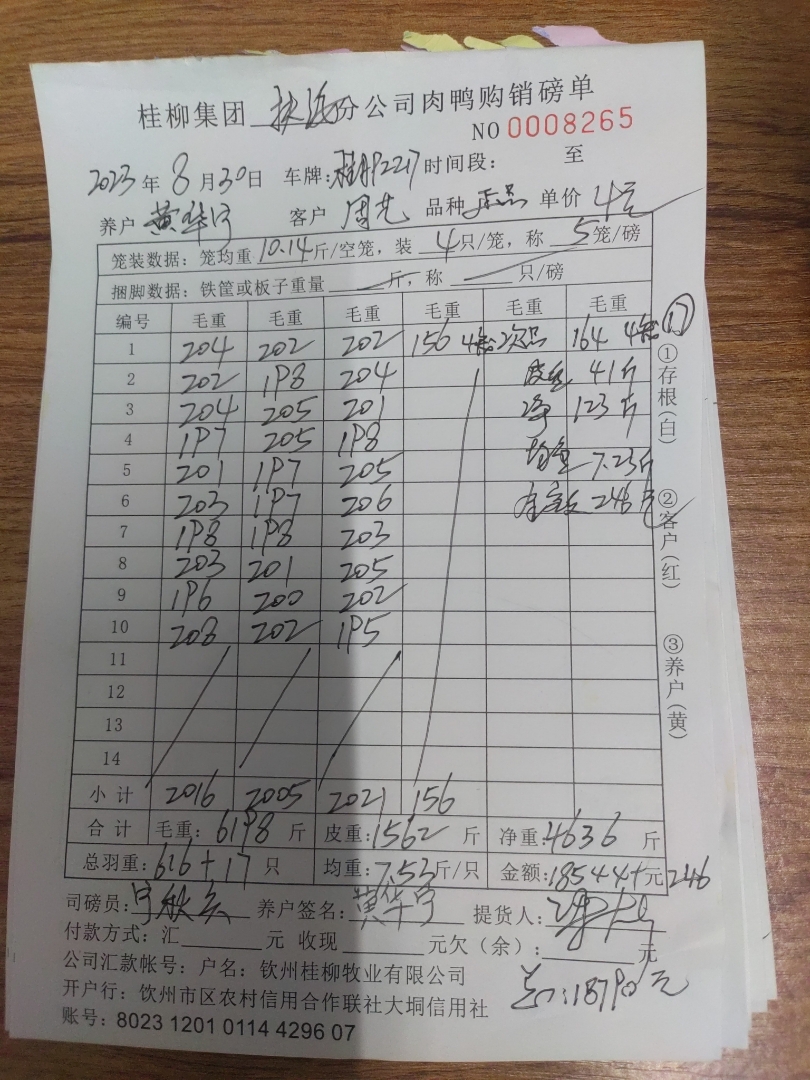 桂柳集团 扶 分公司肉鸭购销磅单
NO 0008265
2023年8月30日 车牌: 时间段: 至
养户 黄华宇 客户 周先 品种 正品 单价 4元
笼装数据：笼均重10.14斤/空笼，装 4只/笼，称 5笼/磅
捆脚数据：铁筐或板子重量 斤，称 只/磅
编号 毛重 毛重 毛重 毛重 毛重 毛重
1 204 202 202 156 4 次品 164 4
2 202 198 204 皮重 41斤
3 204 205 201 净 123斤
4 197 205 198
5 201 197 205 均重 7.23斤
6 203 197 206 金额 246元
7 198 198 203
8 203 201 205
9 196 200 202
10 208 202 195
11
12
13
14
小计 2016 2005 2021 156
合计 毛重：6198 斤 皮重:1562 斤 净重:4636 斤
总羽重:616+17 只 均重:7.53斤/只 金额:18544+元 246
司磅员: 养户签名:黄华宇 提货人:
付款方式：汇 元 收现 元欠（余）: 元
公司汇款帐号：户名：钦州桂柳牧业有限公司
总:18790元
开户行：钦州市区农村信用合作联社大垌信用社
账号：8023 1201 0114 4296 07
①
①存根(白) ②客户(红) ③养户(黄)